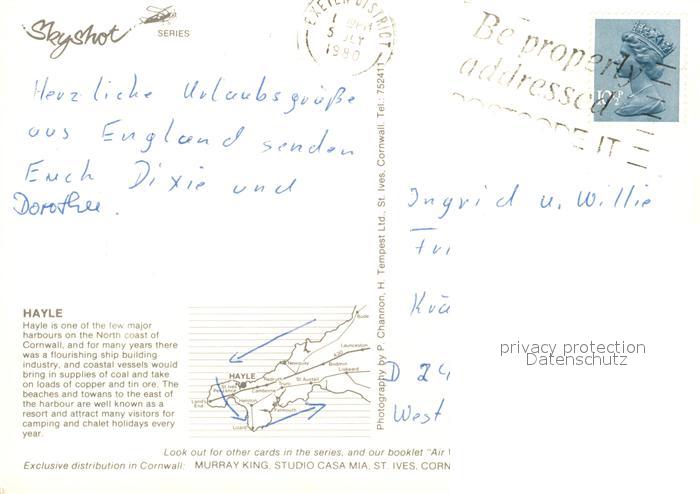 Skyshot
SERIES
EXETER DISTRICT
5 JLY
1980
Be properly
addressed
POSTCODE IT
10½P
Herzliche Urlaubsgrüße
aus England senden
Euch Dixie und
Dorothee.
Ingrid u. Willie
D 24
West
privacy protection
Datenschutz
Photography by P. Channon, H. Tempest Ltd., St. Ives, Cornwall. Tel.: 752411
HAYLE
Hayle is one of the few major
harbours on the North coast of
Cornwall, and for many years there
was a flourishing ship building
industry, and coastal vessels would
bring in supplies of coal and take
on loads of copper and tin ore. The
beaches and towns to the east of
the harbour are well known as a
resort and attract many visitors for
camping and chalet holidays every
year.
Bude
Launceston
Newquay
Bodmin
Liskeard
HAYLE
St Ives
Redruth
Truro
St Austell
Penzance
Camborne
Land's
End
Helston
Falmouth
Lizard
Look out for other cards in the series, and our booklet "Air
Exclusive distribution in Cornwall: MURRAY KING, STUDIO CASA MIA, ST. IVES, CORN